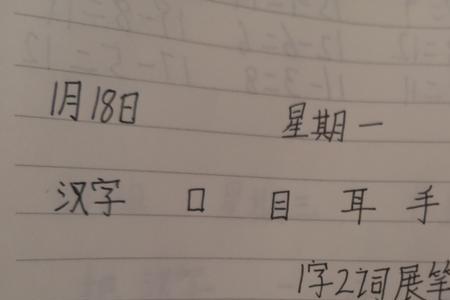 1月18日 星期一
汉字 口 目 耳 手
1字2词展笔